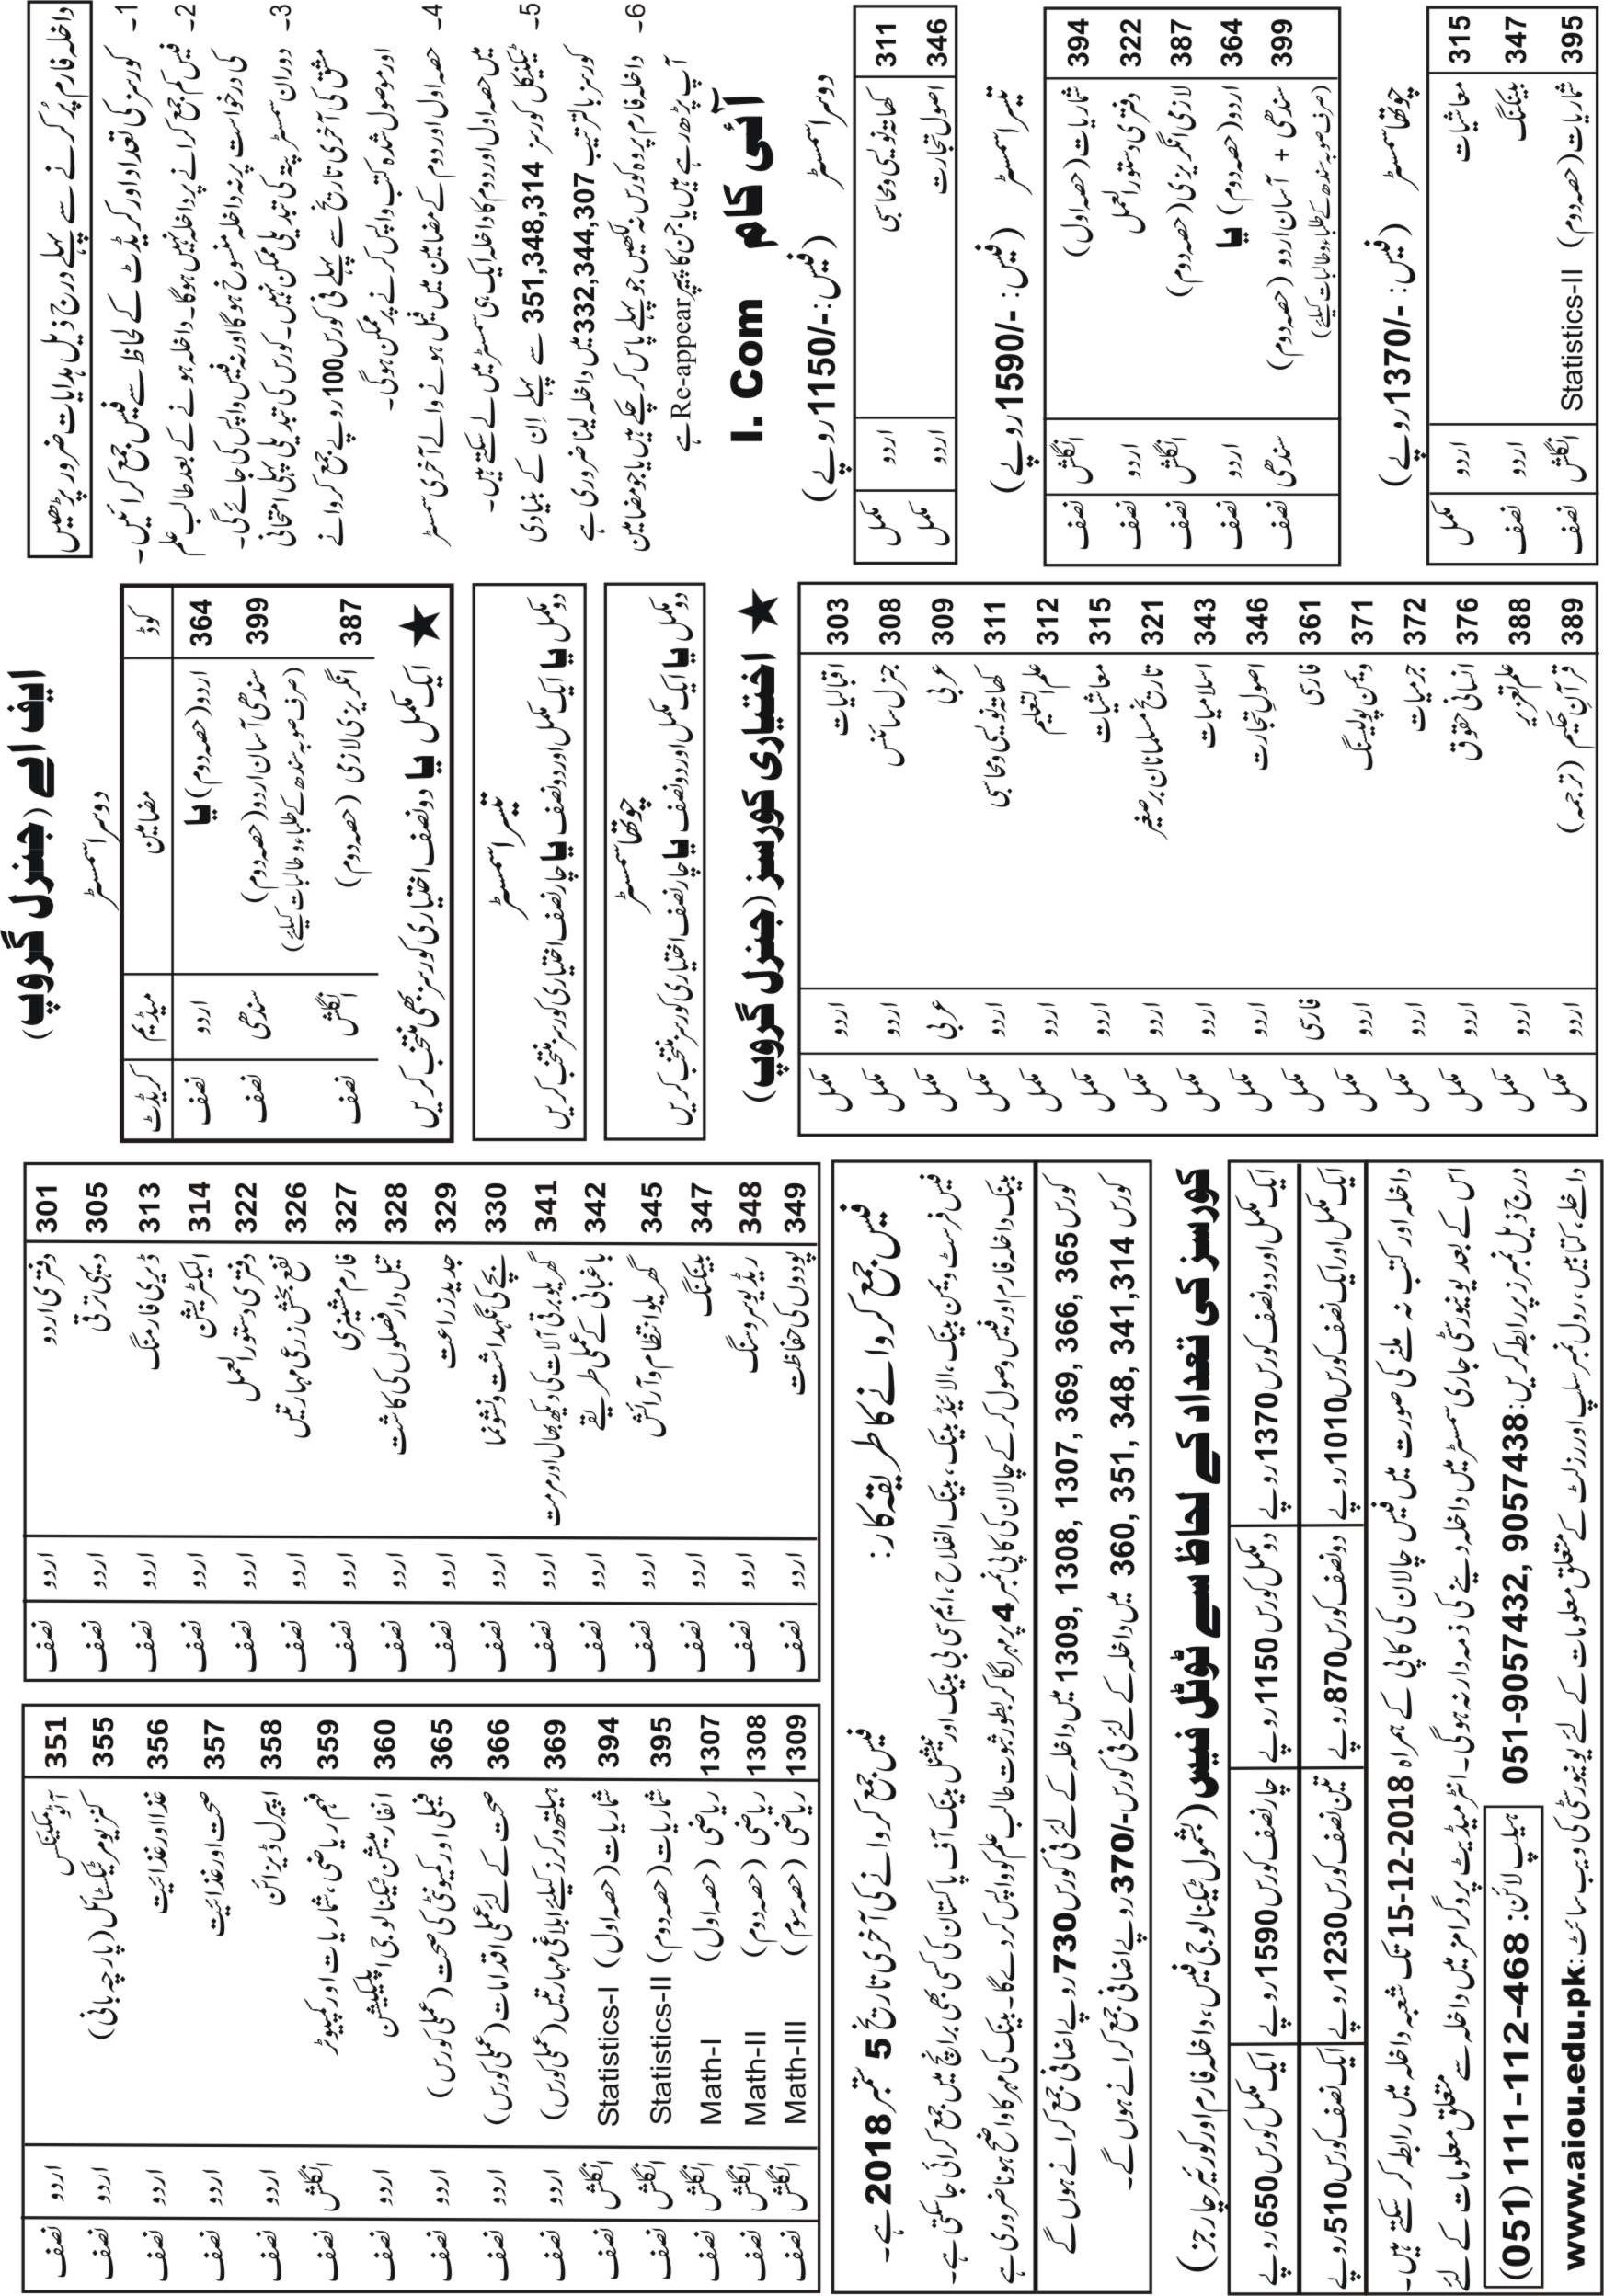 داخلہ فارم پُر کرنے سے پہلے درج ذیل ہدایات ضرور پڑھیں
1۔ کورسز کی تعداد اور کریڈٹ کے لحاظ سے فیس جمع کرائیں۔
2۔ فیس کم جمع کرانے پر داخلہ نہیں ہوگا۔ داخلہ ہونے کے بعد طالب علم
کی درخواست پر نہ داخلہ منسوخ ہوگا اور نہ فیس واپس کی جائے گی۔
3۔ دوران سمسٹر پتہ کی تبدیلی ممکن نہیں۔ کورس کی تبدیلی پہلی امتحانی
مشق کی آخری تاریخ سے پہلے فی کورس 100 روپے جمع کروانے
اور موصول شدہ کتب واپس کرنے پر ممکن ہوگی۔
4۔ حصہ اول اور دوم کے مضامین میں فیل ہونے والے آخری سمسٹر
میں حصہ اول اور دوم کا داخلہ ایک ہی سمسٹر میں لے سکتے ہیں۔
5۔ ٹیکنیکل کورسز 351,348,314 سے پہلے اِن کے بنیادی
کورسز بالترتیب 332,344,307 میں داخلہ لینا ضروری ہے
6۔ داخلہ فارم پر وہ کورس نہ لکھیں جو پہلے پاس کر چکے ہیں یا جو مضامین
آپ پڑھ رہے ہیں یا جن کا پیپر Re-appear ہے
آئی کام I. Com
دوسرا سمسٹر (فیس:-/1150 روپے)
311 کھاتہ نویسی و محاسبی اردو مکمل
346 اصول تجارت اردو مکمل
تیسرا سمسٹر (فیس: -/1590 روپے)
394 شماریات (حصہ اول) انگلش نصف
322 دفتری دستور العمل اردو نصف
387 لازمی انگریزی (حصہ دوم) انگلش نصف
364 اردو (حصہ دوم) یا اردو نصف
399 سندھی + آسان اردو (حصہ دوم) سندھی نصف
(صرف صوبہ سندھ کے طلباء و طالبات کیلئے)
چوتھا سمسٹر (فیس: -/1370 روپے)
315 معاشیات اردو مکمل
347 بینکنگ اردو نصف
395 شماریات (حصہ دوم) Statistics-II انگلش نصف
ایف اے (جنرل گروپ)
دوسرا سمسٹر
کوڈ مضامین میڈیم کریڈٹ
364 اردو (حصہ دوم) یا اردو نصف
399 سندھی آسان اردو (حصہ دوم) سندھی نصف
(صرف صوبہ سندھ کے طلباء و طالبات کیلئے)
387 انگریزی لازمی (حصہ دوم) انگلش نصف
★ ایک مکمل یا دو نصف اختیاری کورسز بھی منتخب کریں
تیسرا سمسٹر
دو مکمل یا ایک مکمل اور دو نصف یا چار نصف اختیاری کورسز منتخب کریں
چوتھا سمسٹر
دو مکمل یا ایک مکمل اور دو نصف یا چار نصف اختیاری کورسز منتخب کریں
★ اختیاری کورسز (جنرل گروپ)
303 اقبالیات اردو مکمل
308 جنرل سائنس اردو مکمل
309 عربی عربی مکمل
311 کھاتہ نویسی و محاسبی اردو مکمل
312 علم التعلیم اردو مکمل
315 معاشیات اردو مکمل
321 تاریخ مسلمانان برصغیر اردو مکمل
343 اسلامیات اردو مکمل
346 اصول تجارت اردو مکمل
361 فارسی فارسی مکمل
371 ویمن پولیسنگ اردو مکمل
372 جرمیات اردو مکمل
376 انسانی حقوق اردو مکمل
388 علم تعزیر اردو مکمل
389 قرآن حکیم (ترجمہ) اردو مکمل
301 دفتری اردو اردو نصف
305 دیہی ترقی اردو نصف
313 ڈیری فارمنگ اردو نصف
314 الیکٹریشن اردو نصف
322 دفتری دستور العمل اردو نصف
326 نفع بخش زرعی مہارتیں اردو نصف
327 فارم مشینری اردو نصف
328 تیل دار فصلوں کی کاشت اردو نصف
329 جدید زراعت اردو نصف
330 بچے کی نگہداشت و نشوونما اردو نصف
341 گھریلو برقی آلات کی دیکھ بھال اور مرمت اردو نصف
342 باغبانی کے عملی طریقے اردو نصف
345 گھریلو انتظام و آرائش اردو نصف
347 بینکنگ اردو نصف
348 ریڈیو سروسنگ اردو نصف
349 پودوں کی حفاظت اردو نصف
351 آٹو مکینکس اردو نصف
355 کنزیومر ٹیکسٹائل (پارچہ بانی) اردو نصف
356 غذا اور غذائیت اردو نصف
357 صحت اور غذائیت اردو نصف
358 اپیرل ڈیزائن اردو نصف
359 فہم ریاضی، شماریات اور کمپیوٹر انگلش نصف
360 انفارمیشن ٹیکنالوجی اپلیکیشن اردو نصف
365 فیملی اور کمیونٹی کی صحت (عملی کورس) اردو نصف
366 صحت کے لئے عملی اقدامات (عملی کورس) اردو نصف
369 ہیلتھ ورکرز کیلئے ابلاغی مہارتیں (عملی کورس) اردو نصف
394 شماریات (حصہ اول) Statistics-I انگلش نصف
395 شماریات (حصہ دوم) Statistics-II انگلش نصف
1307 ریاضی (حصہ اول) Math-I انگلش نصف
1308 ریاضی (حصہ دوم) Math-II انگلش نصف
1309 ریاضی (حصہ سوم) Math-III انگلش نصف
فیس جمع کروانے کا طریقہ کار: فیس جمع کروانے کی آخری تاریخ 5 ستمبر 2018 ہے۔
فیس فرسٹ ویمن بینک، الائیڈ بینک، بینک الفلاح، ایم سی بی بینک اور نیشنل بینک آف پاکستان کی کسی بھی برانچ میں جمع کرائی جا سکتی ہے۔
بینک داخلہ فارم اور فیس وصول کر کے چالان کی کاپی نمبر 4 پر مہر لگا کر بطور ثبوت طالب علم کو واپس کر دے گا۔ بینک کی مہر کا واضح ہونا ضروری ہے
کورس 365 ,366 ,369 ,1307 ,1308 ,1309 میں داخلہ کے لئے فی کورس 730 روپے اضافی جمع کرانے ہوں گے
کورس 341,314 ,348 ,351 ,360 میں داخلہ کے لئے فی کورس -/370 روپے اضافی جمع کرانے ہوں گے۔
کورسز کی تعداد کے لحاظ سے ٹوٹل فیس (بشمول ٹیکنالوجی فیس، داخلہ فارم اور کوریئر چارجز)
ایک مکمل اور دو نصف کورس 1370 روپے دو مکمل کورس 1150 روپے چار نصف کورس 1590 روپے ایک مکمل کورس 650 روپے
ایک مکمل اور ایک نصف کورس 1010 روپے دو نصف کورس 870 روپے تین نصف کورس 1230 روپے ایک نصف کورس 510 روپے
داخلہ اور کتب نہ ملنے کی صورت میں فیس چالان کی کاپی کے ہمراہ 15-12-2018 تک شعبہ داخلہ میں رابطہ کر سکتے ہیں۔
اس کے بعد یونیورسٹی جاری سمسٹر میں داخلہ دینے کی ذمہ دار نہ ہوگی۔ انٹرمیڈیٹ پروگرامز میں داخلہ سے متعلق معلومات کے لئے
درج ذیل نمبرز پر رابطہ کریں: 051-9057432, 9057438 ہیلپ لائن: 111-112-468 (051)
داخلے، کتابیں، رول نمبر سلپ اور رزلٹ کے متعلق معلومات کے لئے یونیورسٹی کی ویب سائٹ: www.aiou.edu.pk